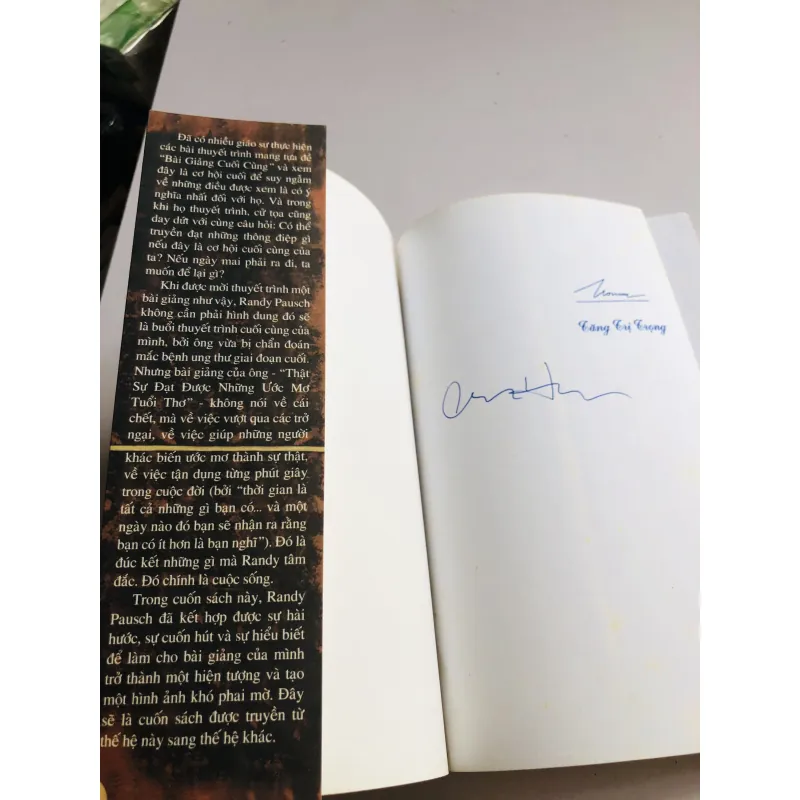 Đã có nhiều giáo sư thực hiện
các bài thuyết trình mang tựa đề
"Bài Giảng Cuối Cùng" và xem
đây là cơ hội cuối để suy ngẫm
về những điều được xem là có ý
nghĩa nhất đối với họ. Và trong
khi họ thuyết trình, cử tọa cũng
day dứt với cùng câu hỏi: Có thể
truyền đạt những thông điệp gì
nếu đây là cơ hội cuối cùng của
ta? Nếu ngày mai phải ra đi, ta
muốn để lại gì?
Khi được mời thuyết trình một
bài giảng như vậy, Randy Pausch
không cần phải hình dung đó sẽ
là buổi thuyết trình cuối cùng của
mình, bởi ông vừa bị chẩn đoán
mắc bệnh ung thư giai đoạn cuối.
Nhưng bài giảng của ông - "Thật
Sự Đạt Được Những Ước Mơ
Tuổi Thơ" - không nói về cái
chết, mà về việc vượt qua các trở
ngại, về việc giúp những người
khác biến ước mơ thành sự thật,
về việc tận dụng từng phút giây
trong cuộc đời (bởi "thời gian là
tất cả những gì bạn có... và một
ngày nào đó bạn sẽ nhận ra rằng
bạn có ít hơn là bạn nghĩ"). Đó là
đúc kết những gì mà Randy tâm
đắc. Đó chính là cuộc sống.
Trong cuốn sách này, Randy
Pausch đã kết hợp được sự hài
hước, sự cuốn hút và sự hiểu biết
để làm cho bài giảng của mình
trở thành một hiện tượng và tạo
một hình ảnh khó phai mờ. Đây
sẽ là cuốn sách được truyền từ
thế hệ này sang thế hệ khác.
Tăng Trị Trọng